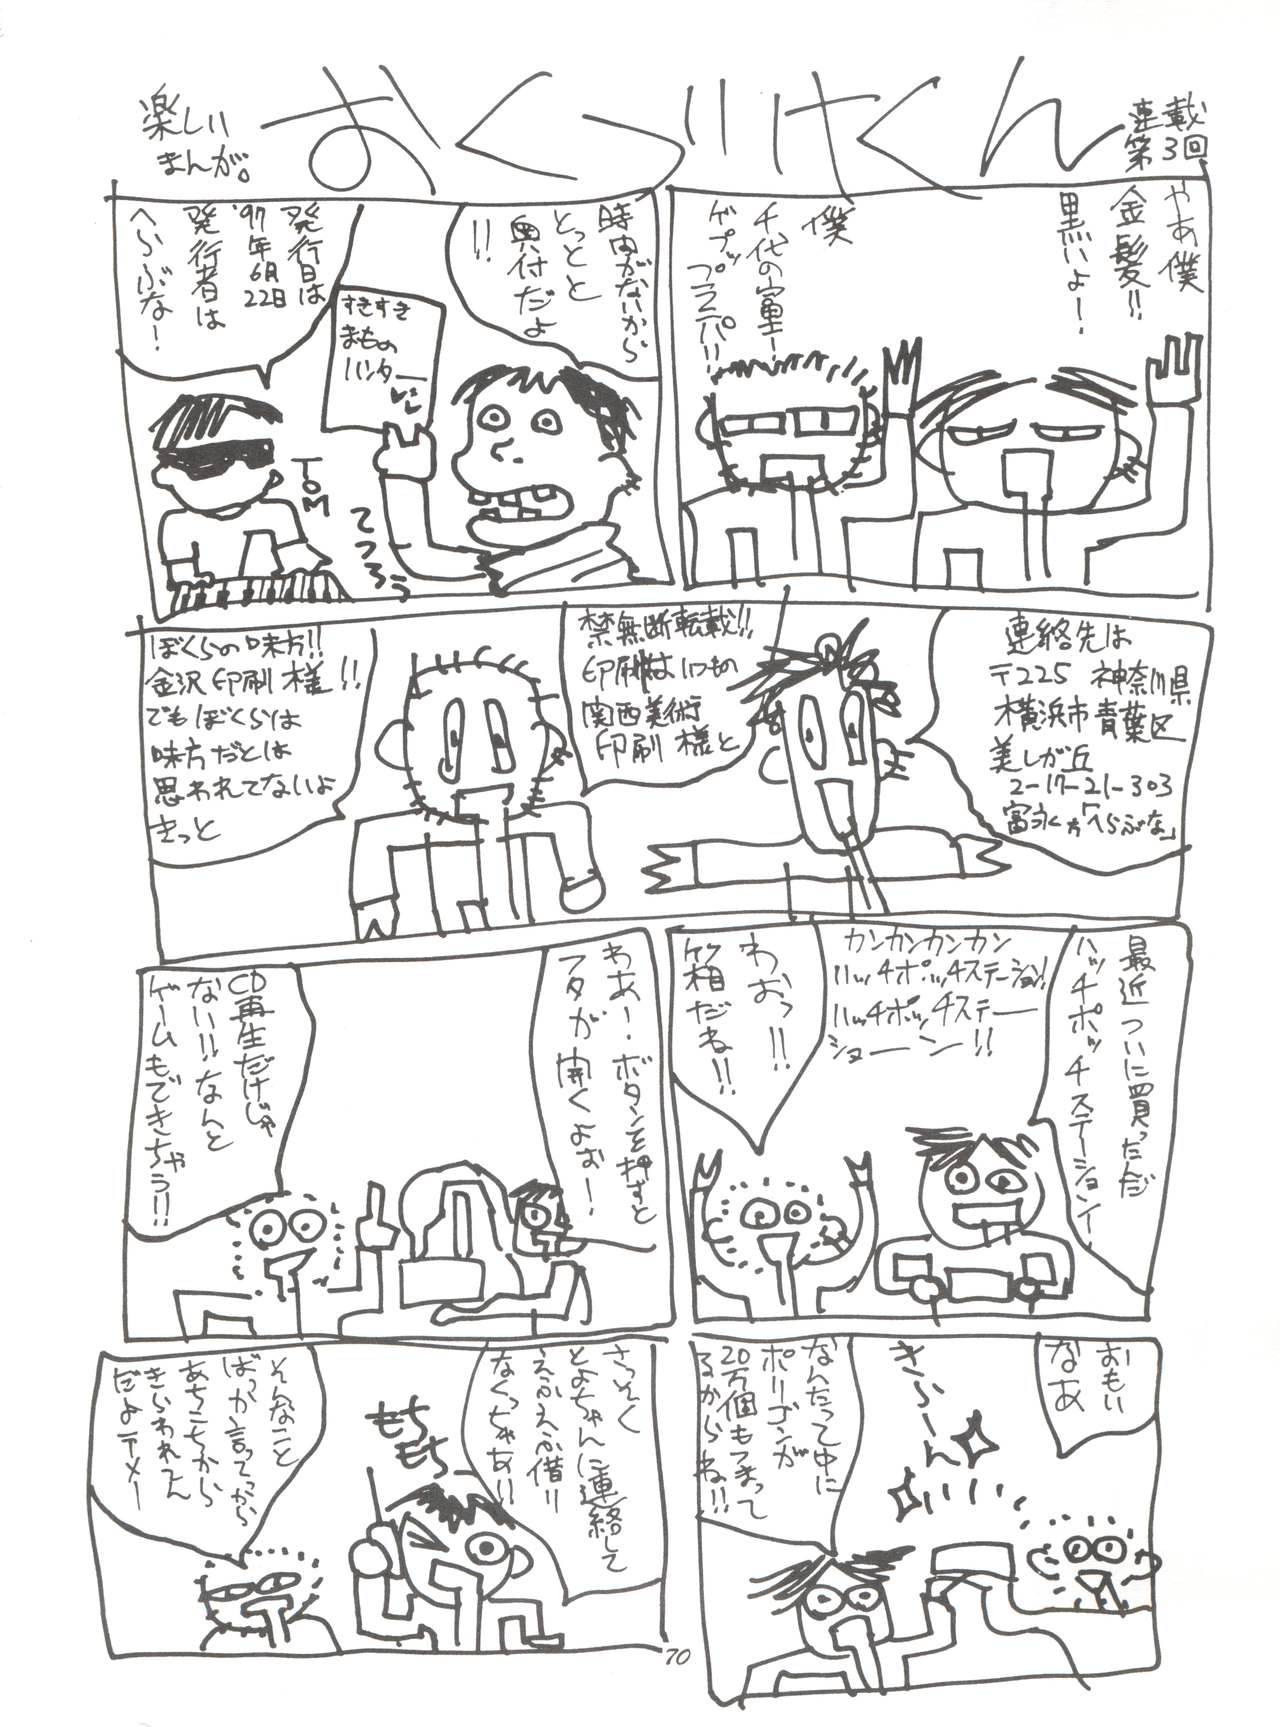 楽しい
まんが。
おくづけくん
連載
第3回
やあ僕
金髪!!
黒いよ!
僕
千代の富士!
ゲプップラニパ!!
時間がないから
とっとと
奥付だよ
!!
すきすき
まもの
ハンター
レレ
発行日は
'97年
6月
22日
発行者は
へらぶな!
TOM
てつろう
連絡先は
〒225 神奈川県
横浜市青葉区
美しが丘
2-17-21-303
富永方「へらぶな」
禁無断転載!!
印刷はいつもの
関西美術
印刷様と
ぼくらの味方!!
金沢印刷様!!
でもぼくらは
味方だとは
思われてないよ
きっと
最近ついに買ったんだ
ハッチポッチステーションイー
カンカンカンカン
ハッチポッチステーション!
ハッチポッチステー
ショーン!!
わおっ!!
箱だね!!
わあー、ボタンを押すと
フタが開くよぉ!
CD再生だけじゃ
ない!!なんと
ゲームもできちゃう!!
おもい
なあ
きらーん
なんたって中に
ポリゴンが
20万個もつまって
るからね!!
さっそく
とよちゃんに連絡して
えふえふ借り
なくっちゃあ!!
もち
もち
そんなこと
ばっか言ってっから
あちこちから
きらわれてん
だよテメー
70